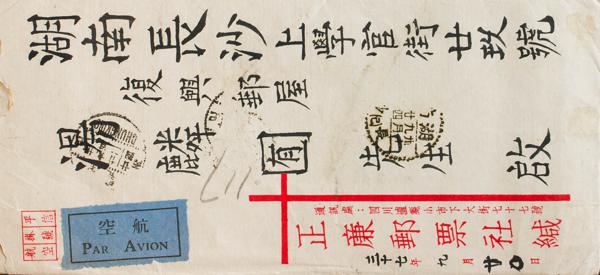 湖南長沙上學官街廿玖號
復興郵屋
湯麟囿先生啟
通訊處：四川瀘縣小市下大街七十七號
正廉郵票社緘
三十七年九月廿〇日
空航
PAR AVION